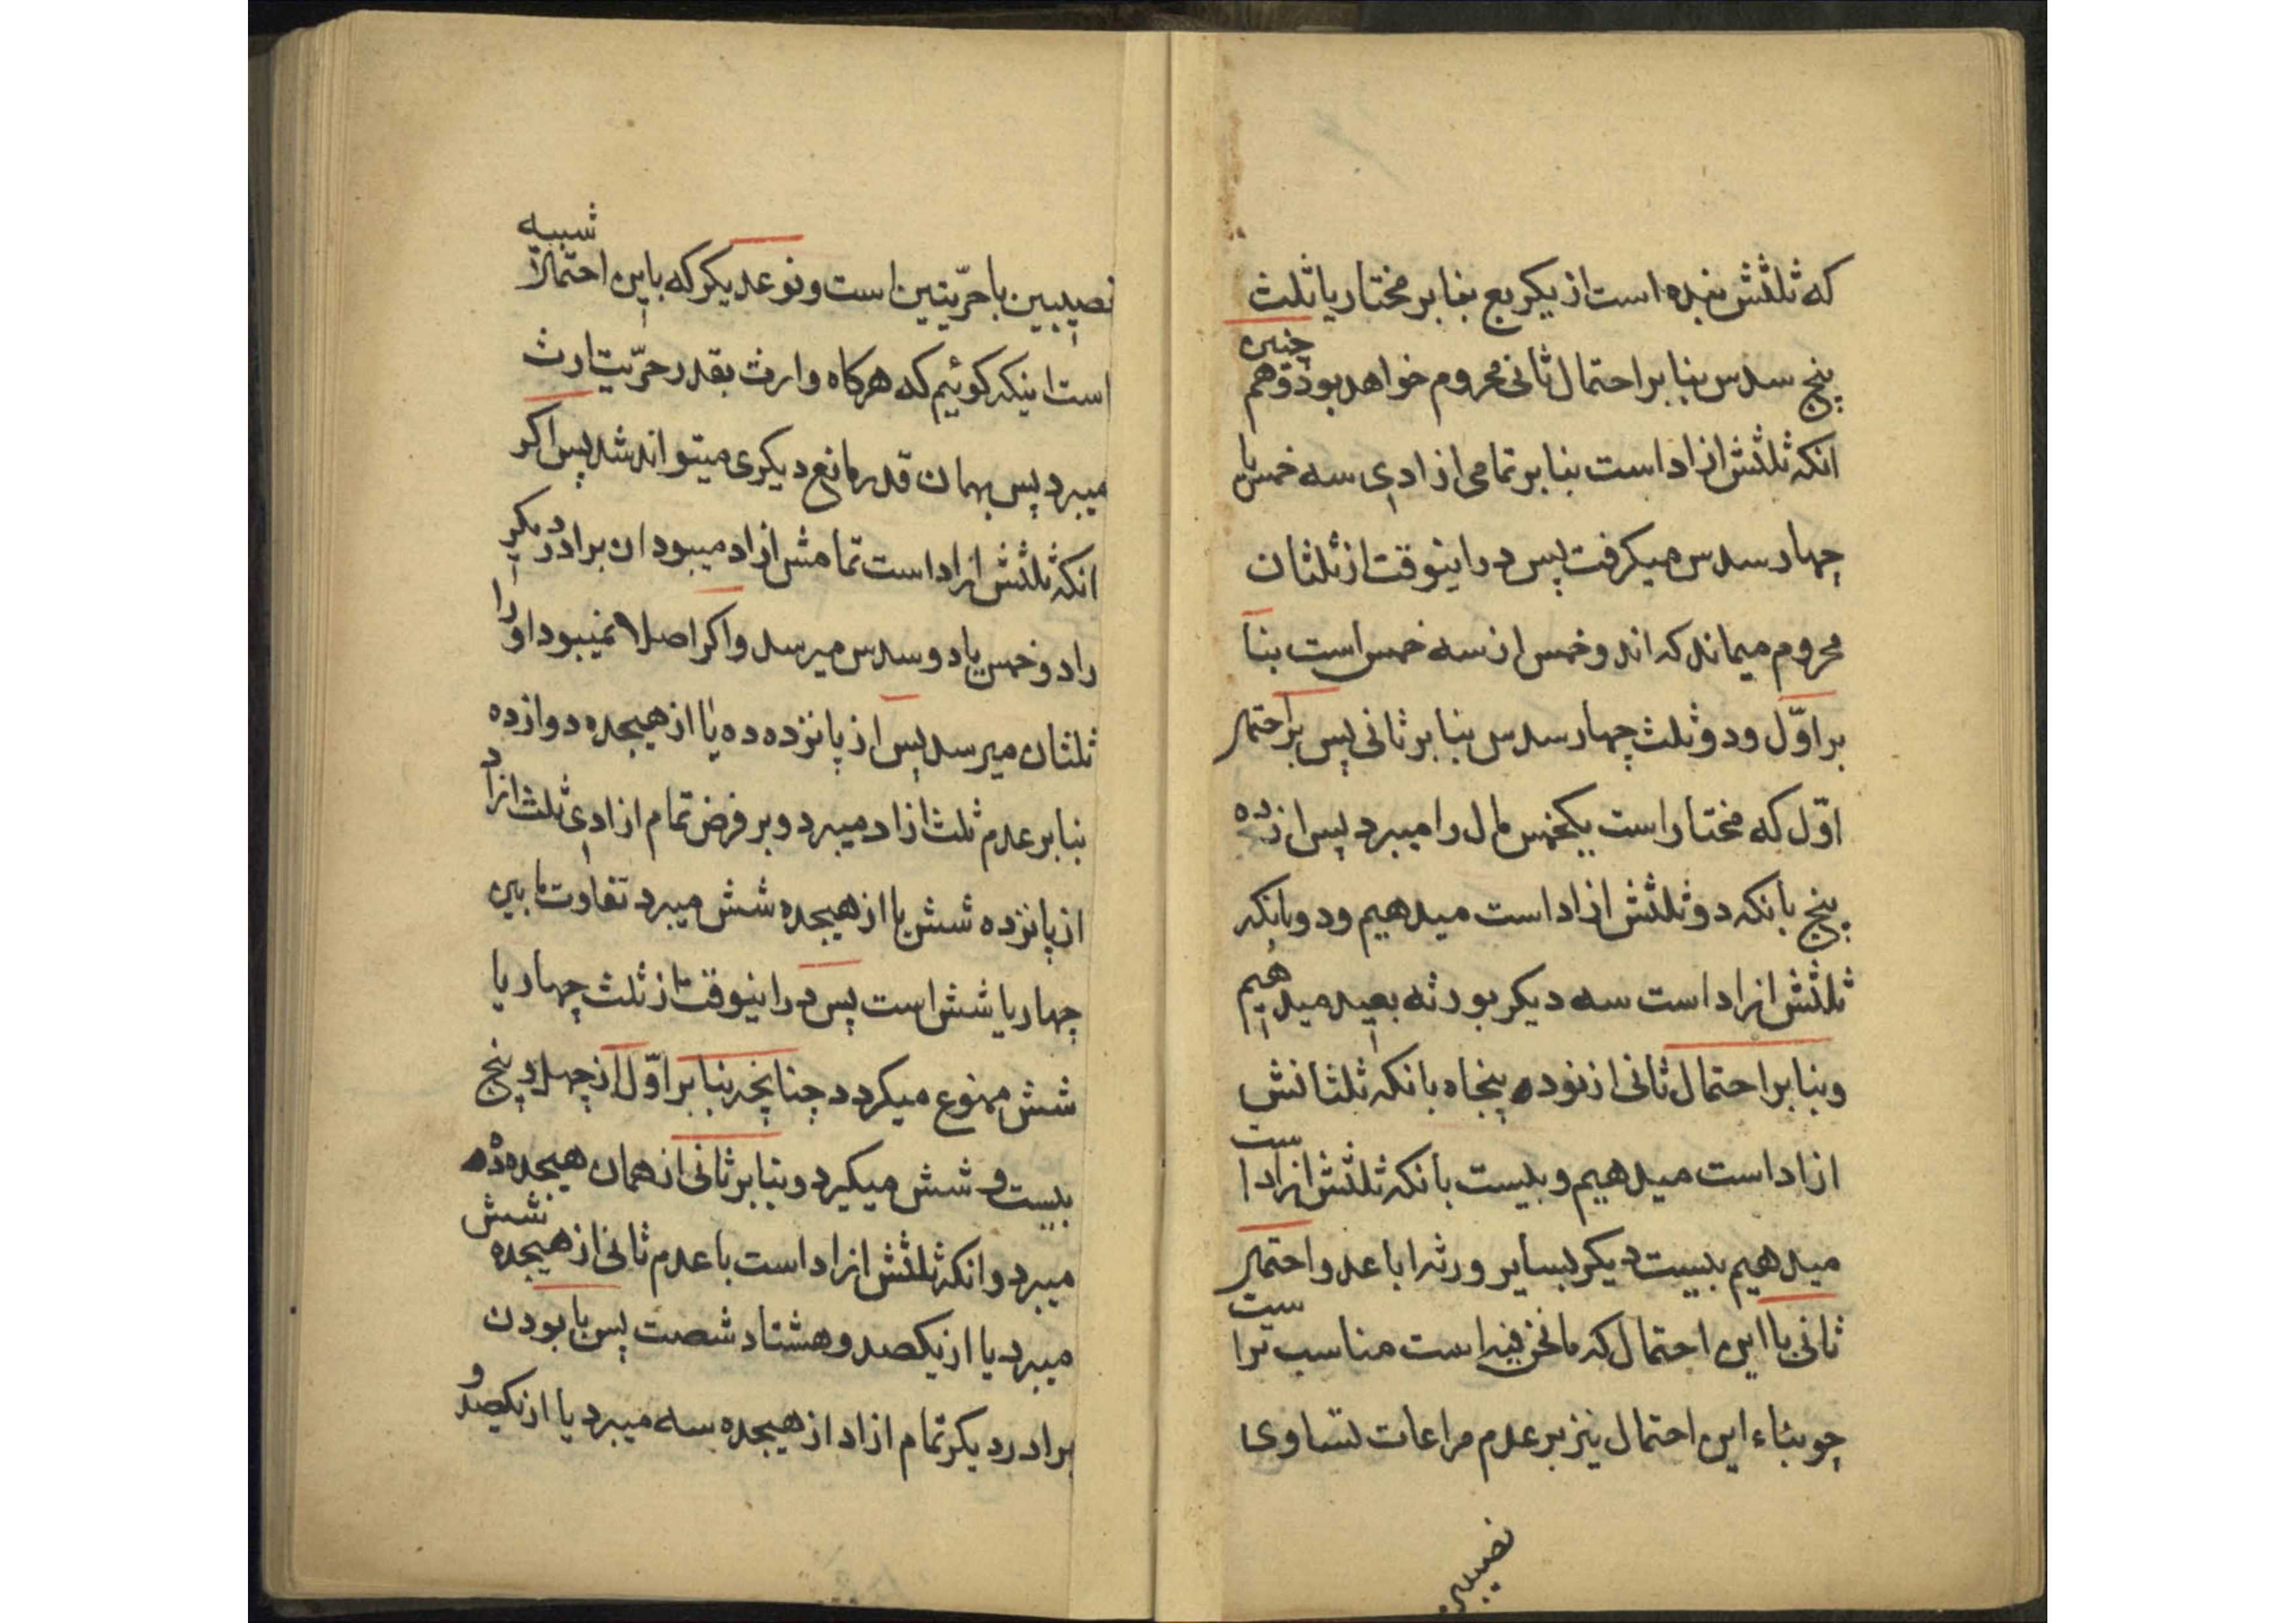 که ثلثش بنده است از یکربع بنا بر مختار یا ثلث
پنج سدس بنا بر احتمال ثانی محروم خواهد بود و همچنین
انکه ثلثش ازاد است بنا بر تمامی ازادی سه خمس یا
چهار سدس میکرفت پس در اینوقت از ثلثان
محروم میماند که اندو خمس از سه خمس است بنا
بر اوّل و دو ثلث چهار سدس بنا بر ثانی پس بر احتمال
اوّل که مختار است یکخمس مال را میبرد پس از ده
پنج بانکه دو ثلثش ازاد است میدهیم و دو بانکه
ثلثش ازاد است سه دیکر بورثه بعید میدهیم
و بنا بر احتمال ثانی از نود پنجاه بانکه ثلثانش
ازاد است میدهیم و بیست بانکه ثلثش ازاد است
میدهیم بیست دیکر بسایر ورثه اباعد و احتمال
ثانی با این احتمال که مانحن فیه است مناسب تر است
چو بناء این احتمال نیز بر عدم مراعات تساوی
نصیبین
نصیبین با حرّیتین است و نوعدیکر که باین احتمالا شبیه
است اینکه کوئیم که هرکاه وارث بقدر حرّیت ارث
میبرد پس بهمان قدر مانع دیکری میتواند شد پس اکر
انکه ثلثش ازاد است تمامش ازاد میبود ان برادر دیکر
را دو خمس یا دو سدس میرسد و اکر اصلا نمیبود او را
ثلثان میرسد پس از پانزده ده یا از هیجده دوازده
بنا بر عدم ثلث ازاد میبرد و بر فرض تمام ازادی ثلث ازاد
از پانزده شش یا از هیجده شش میبرد تفاوت مابین
چهار یا شش است پس در اینوقت از ثلث چهار یا
شش ممنوع میکردد چنانچه بنا بر اوّل از چهل و پنج
بیست و شش میکیرد و بنا بر ثانی از همان هیجده ده
میبرد و انکه ثلثش ازاد است با عدم ثانی از هیجده شش
میبرد یا از یکصد و هشتاد شصت پس با بودن
برادر دیکر تمام ازاد از هیجده سه میبرد یا از یکصد و